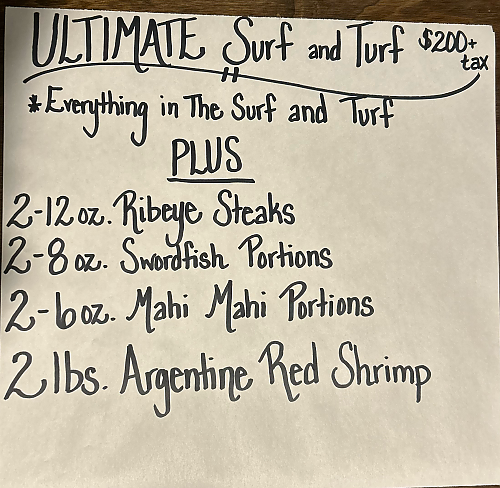 ULTIMATE Surf and Turf $200+
tax
*Everything in The Surf and Turf
PLUS
2-12 oz. Ribeye Steaks
2-8 oz. Swordfish Portions
2-6 oz. Mahi Mahi Portions
2 lbs. Argentine Red Shrimp